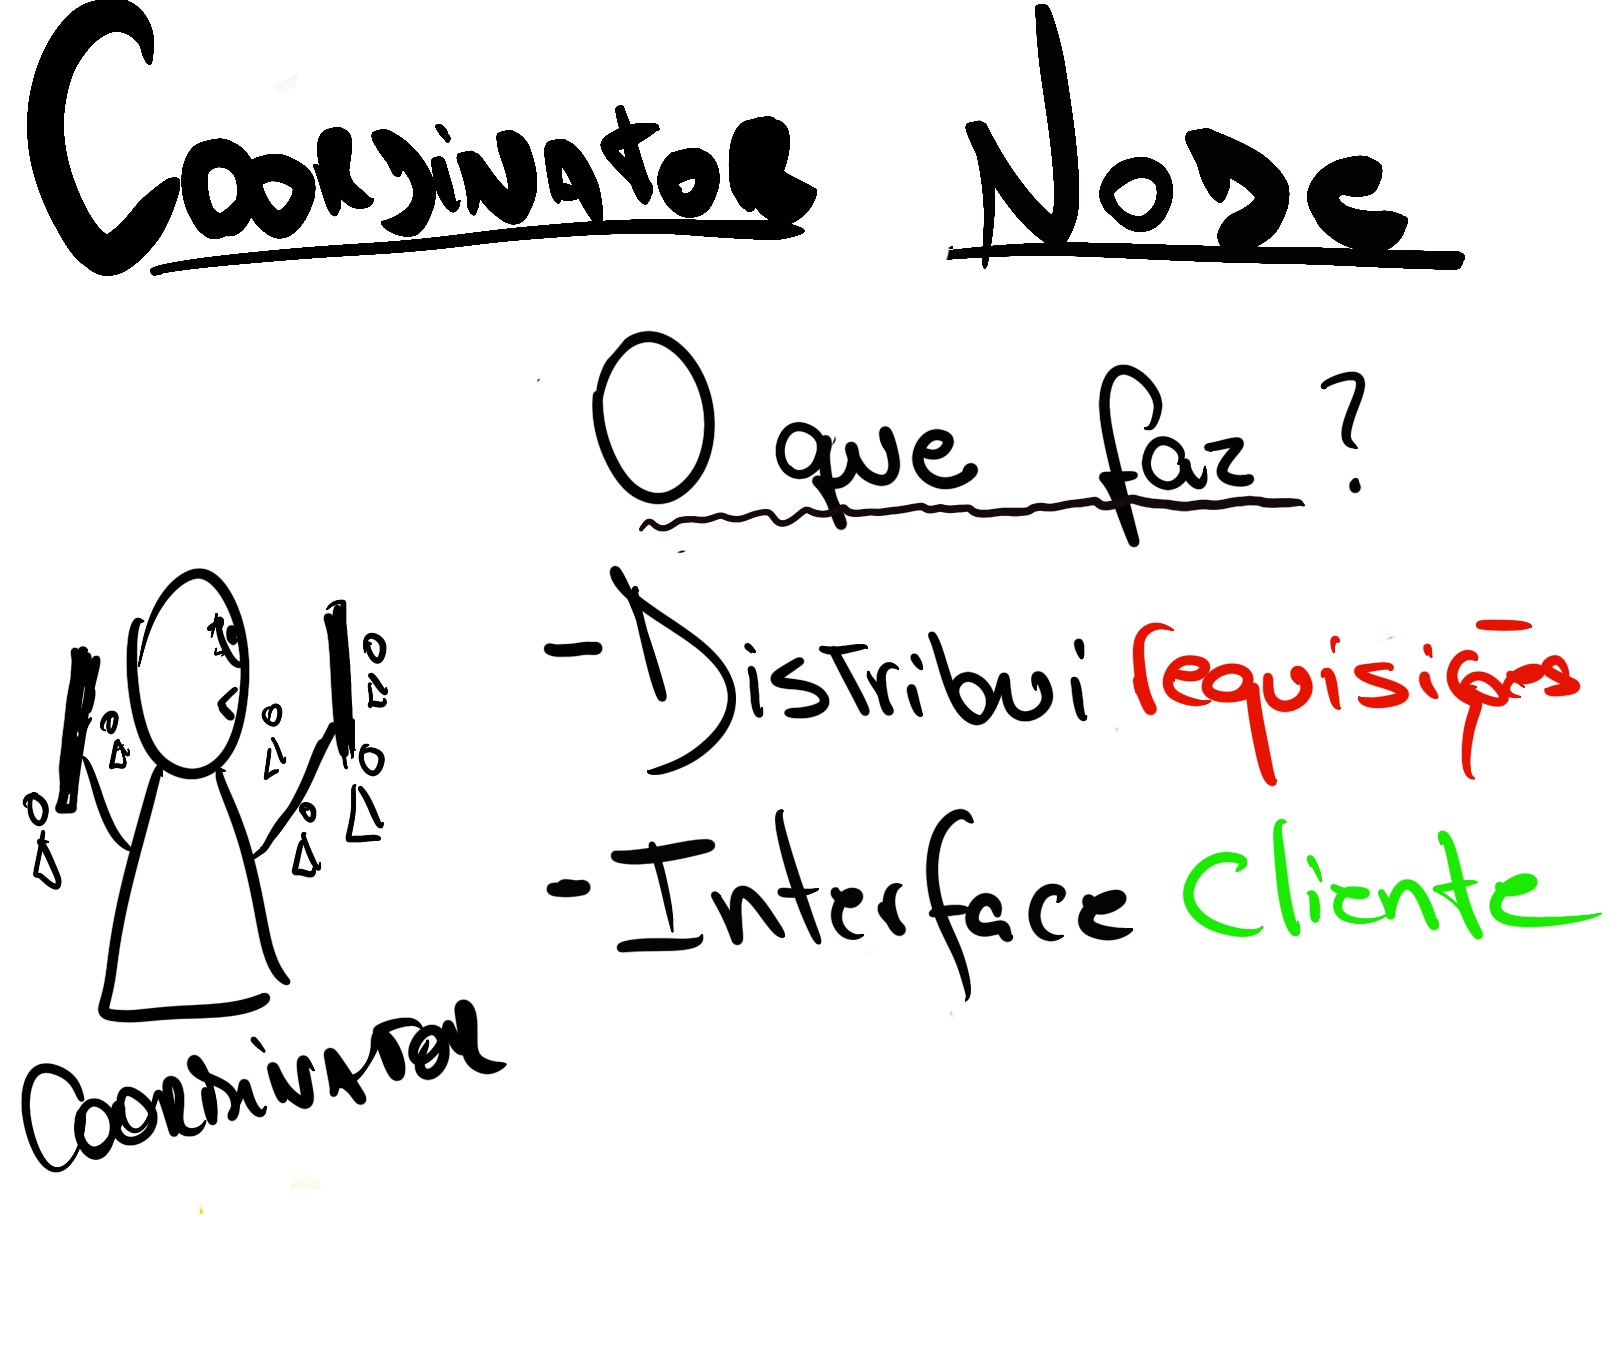 COORDINATOR NODE
O que faz?
- Distribui requisições
- Interface Cliente
COORDINATOR